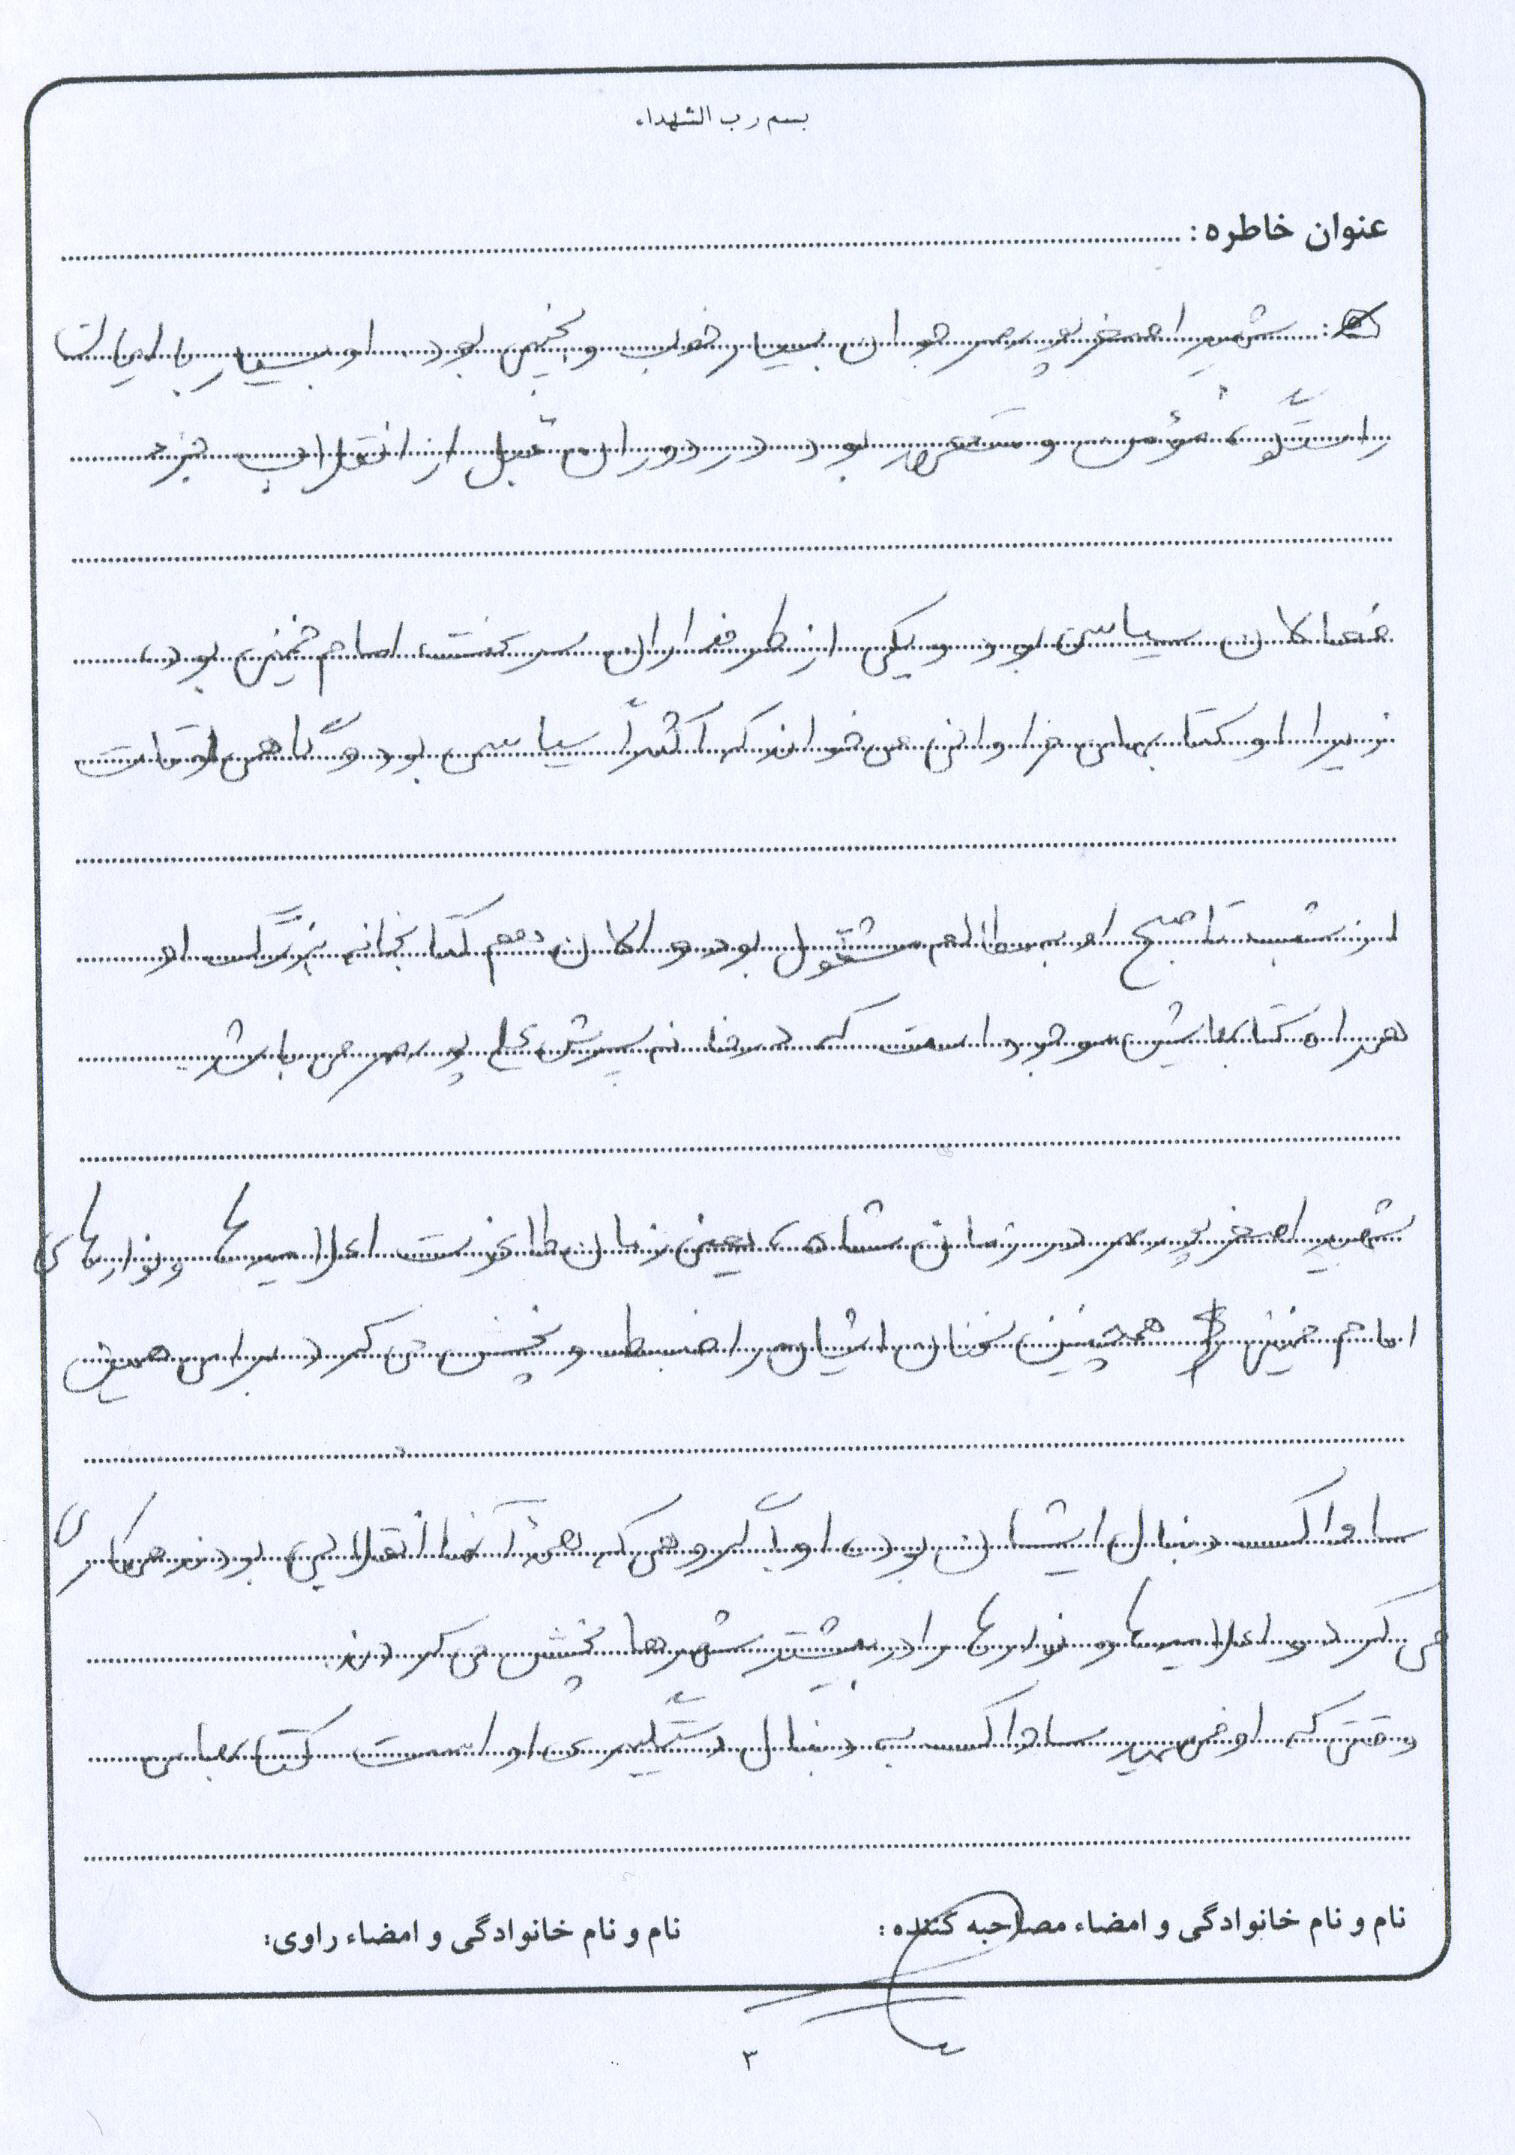 بسم رب الشهداء
عنوان خاطره:
شهید اصغر پورمهر جوان بسیار خوب و بود. او بسیار با ایمان
راستگو، مؤمن و متعهد بود. در دوران قبل از انقلاب جزء
فعالان سیاسی بود و یکی از طرفداران سرسخت امام خمینی بود،
زیرا او کتابهای فراوانی می خواند که اکثراً سیاسی بود و گاهی اوقات
از شب تا صبح او به مطالعه مشغول بود و الان هم کتابخانه بزرگ او
همراه کتابهایش موجود است که در خانه پدرش پورمهر می باشد.
شهید اصغر پورمهر در زمان شاه، یعنی زمان طاغوت اعلامیه ها و نوارهای
امام خمینی همچنین سخنان ایشان را ضبط و پخش می کرد برای همین
ساواک دنبال ایشان بود، او با گروهی که همهٔ آنها انقلابی بودند همکاری
می کرد و اعلامیه ها و نوارها را در بیشتر شهرها پخش می کردند.
وقتی که او فهمید ساواک به دنبال دستگیری او است کتابهای
نام و نام خانوادگی و امضاء مصاحبه کننده:
نام و نام خانوادگی و امضاء راوی:
۳